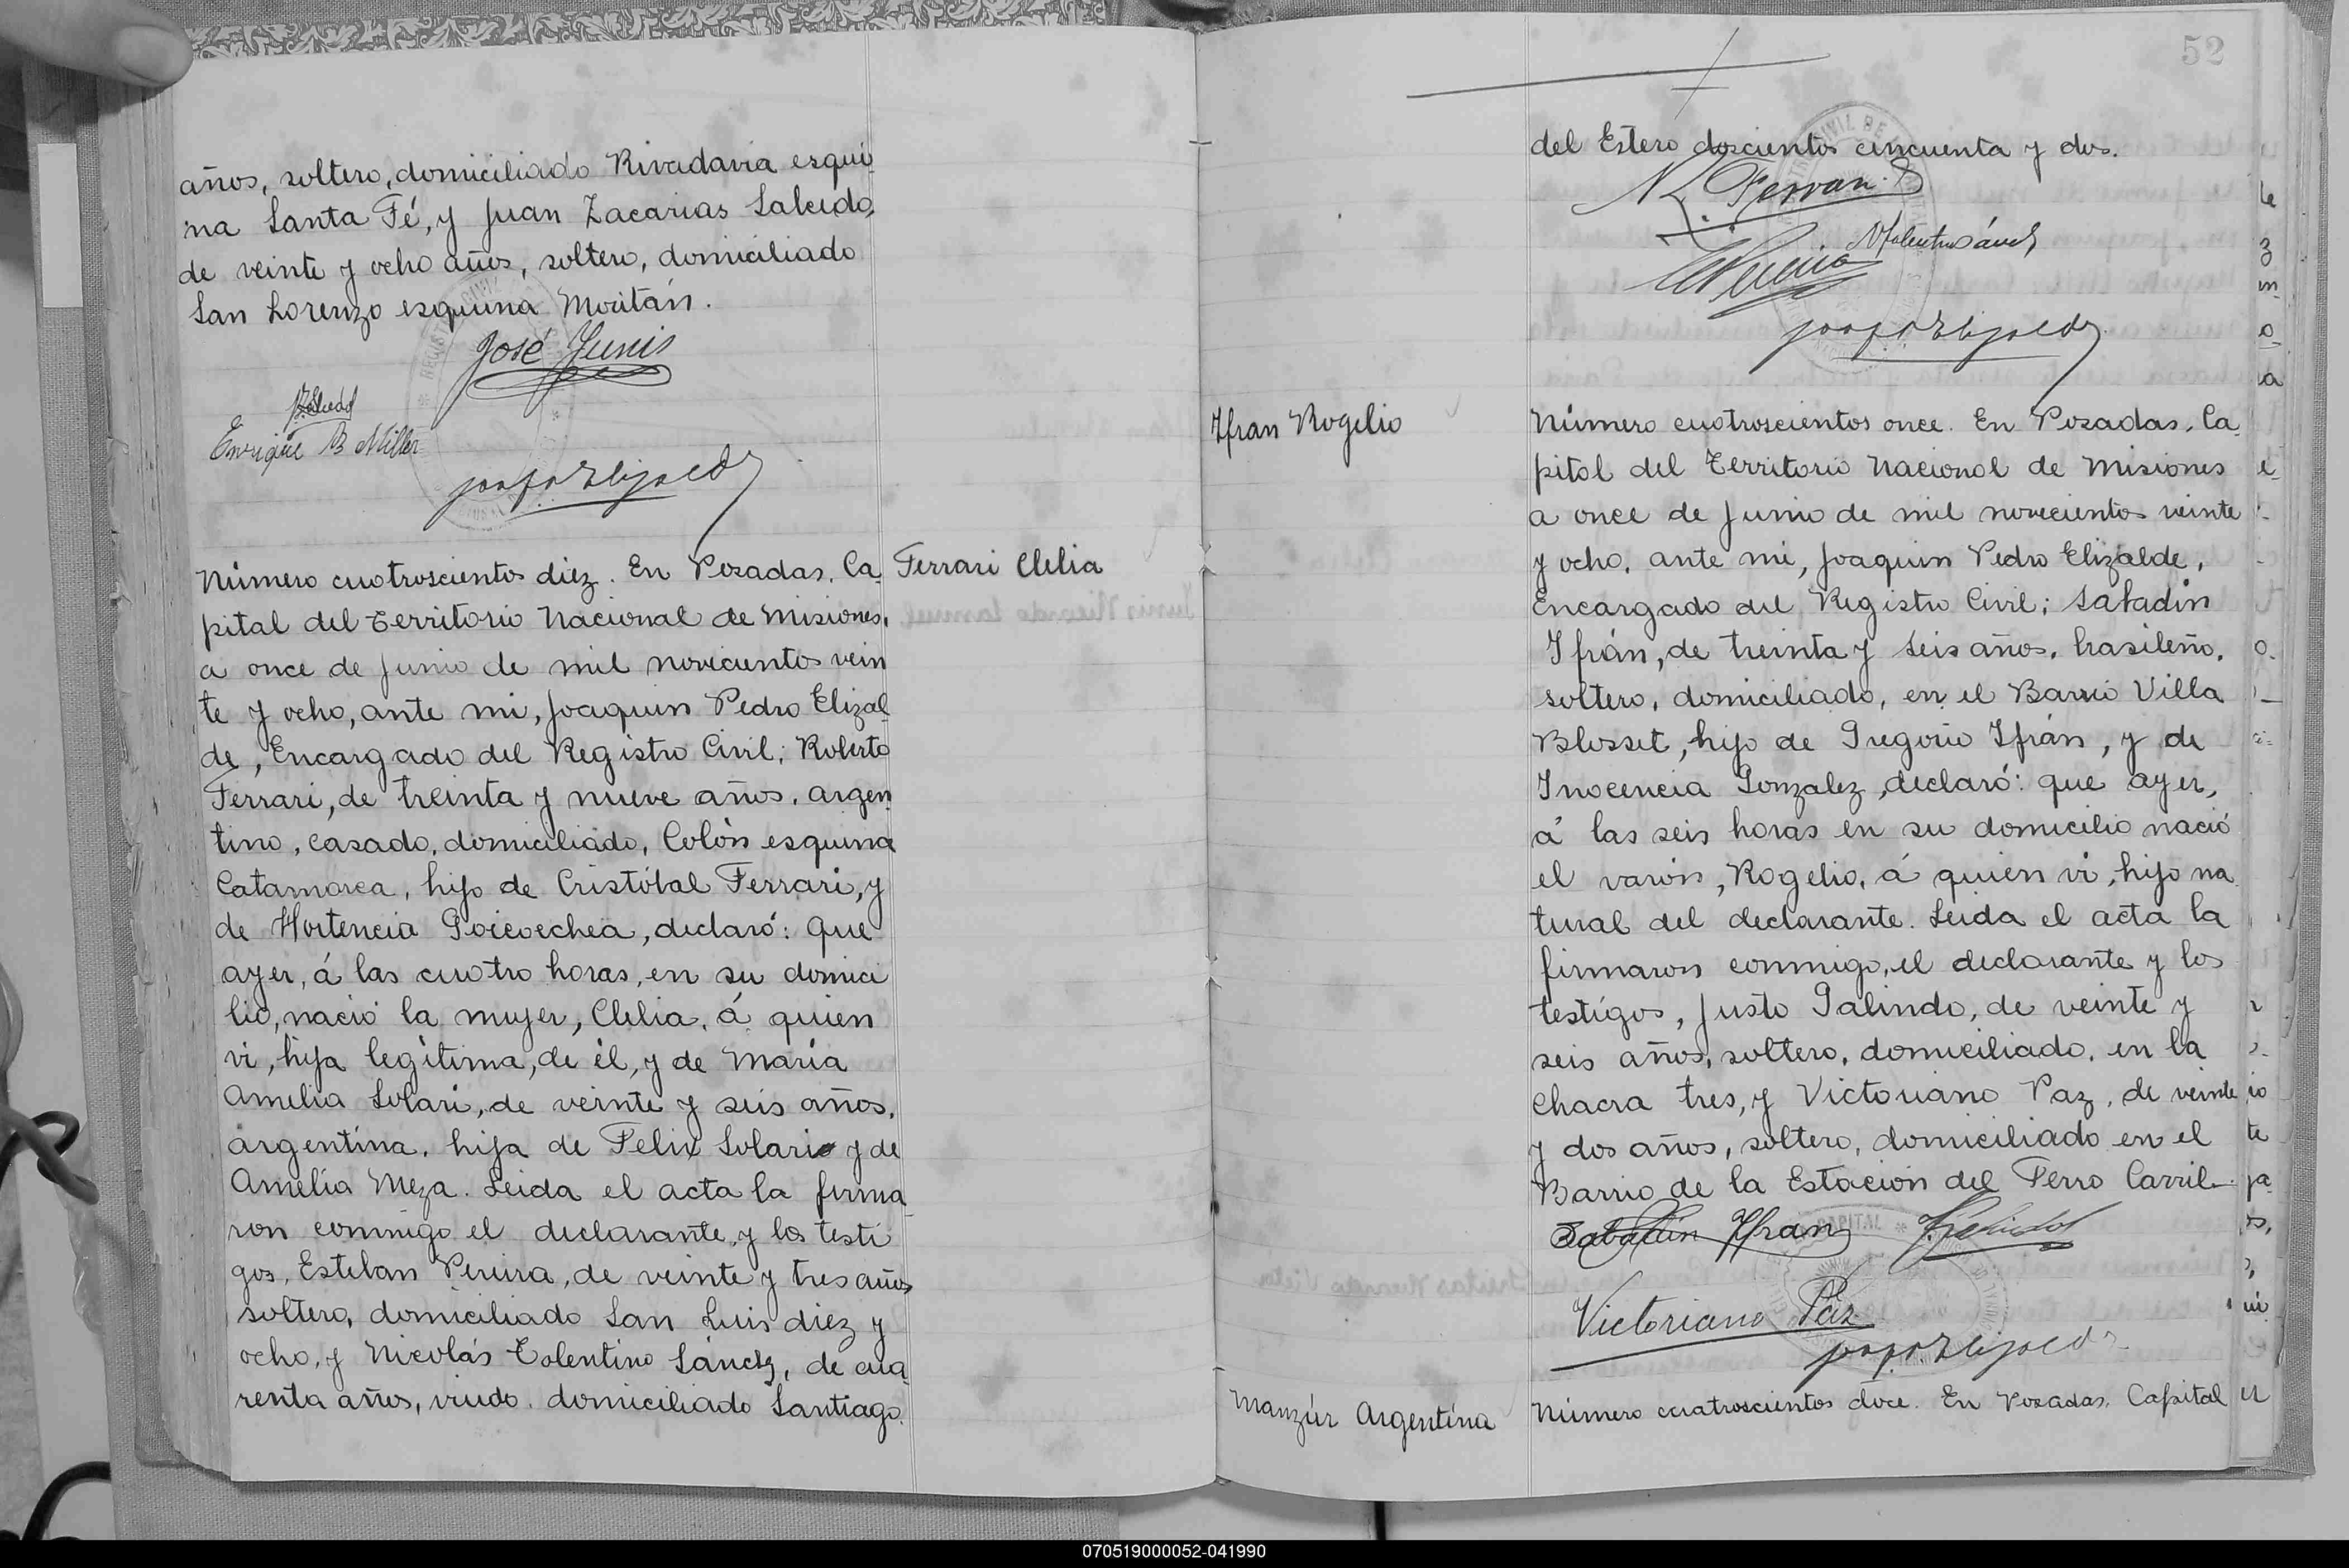 años, soltero, domiciliado Rivadavia esqui
na Santa Fé, y Juan Zacarias Salcido,
de veinte y ocho años, soltero, domiciliado
San Lorenzo esquina Moritán.
José Junis
Enrique B Miller
Número cuotroscientos diez. En Posadas, Ca
pital del Territorio Nacional de Misiones,
a once de Junio de mil novecientos vein
te y ocho, ante mi, Joaquin Pedro Elizal
de, Encargado del Registro Civil; Roberto
Ferrari, de treinta y nueve años, argen
tino, casado, domiciliado, Colón esquina
Catamarca, hijo de Cristóbal Ferrari, y
de Hortencia Goicoechea, declaró: que
ayer, á las cuotro horas, en su domici
lio, nació la mujer, Clelia, á quien
vi, hija legítima, de él, y de María
Amelia Solari, de veinte y seis años,
argentina, hija de Felix Solari y de
Amelia Meza. Leida el acta la firma
ron conmigo el declarante y los testi
gos, Esteban Pereira, de veinte y tres años
soltero, domiciliado San Luis diez y
ocho, y Nicolás Tolentino Sánchz, de cua
renta años, viudo, domiciliado Santiago
Ferrari Clelia
52
del Estero doscientos cincuenta y dos.
Ifran Rogelio
Número cuotroscientos once. En Posadas, Ca
pitol del Territorio Nacional de Misiones
a once de Junio de mil novecientos veinte
y ocho, ante mi, Joaquin Pedro Elizalde,
Encargado del Registro Civil; Sabadin
Ifrán, de treinta y seis años, brasileño,
soltero, domiciliado, en el Barrio Villa
Blosset, hijo de Gregorio Ifrán, y de
Inocencia Gonzalez, declaró: que ayer,
á las seis horas en su domicilio nació
el varón, Rogelio, á quien vi, hijo na
tural del declarante. Leida el acta la
firmaron conmigo, el declarante y los
testigos, Justo Galindo, de veinte y
seis años, soltero, domiciliado, en la
Chacra tres, y Victoriano Paz, de veinte
y dos años, soltero, domiciliado en el
Barrio de la Estación del Ferro Carril.
Sabadin Ifran
Victoriano Paz
Manzúr Argentina
Número cuatroscientos doce. En Posadas, Capital
070519000052-041990